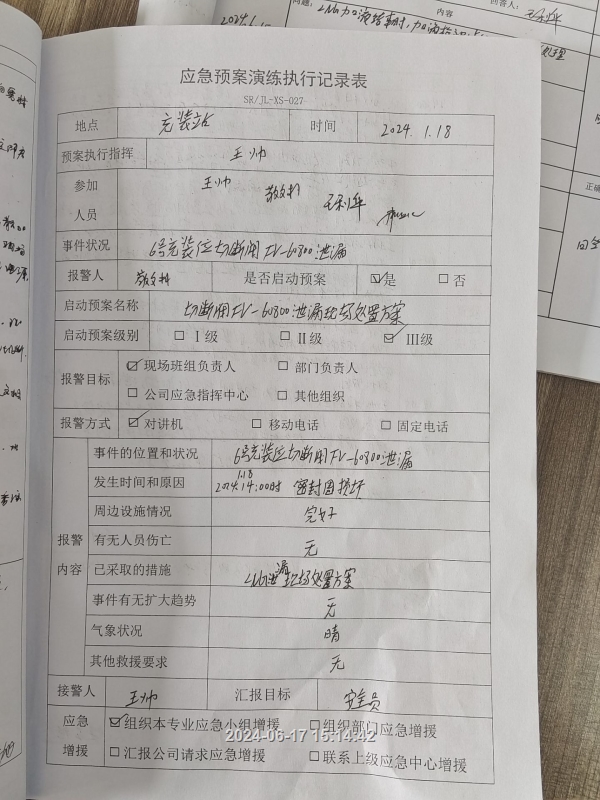 应急预案演练执行记录表
SR/JL-XS-027
地点 充装站 时间 2024. 1.18
预案执行指挥 王帅
参加人员 王帅
事件状况 6号充装位切断阀FV-60800泄漏
报警人 是否启动预案 ☑是 □否
启动预案名称 切断阀FV-60800泄漏现场处置方案
启动预案级别 □Ⅰ级 □Ⅱ级 ☑Ⅲ级
报警目标 ☑现场班组负责人 □部门负责人
□公司应急指挥中心 □其他组织
报警方式 ☑对讲机 □移动电话 □固定电话
报警内容
事件的位置和状况 6号充装位切断阀FV-60800泄漏
发生时间和原因 2024.1.18 14:00时 密封圈损坏
周边设施情况 完好
有无人员伤亡 无
已采取的措施 LNG泄漏现场处置方案
事件有无扩大趋势 无
气象状况 晴
其他救援要求 无
接警人 王帅 汇报目标 安全员
应急增援 ☑组织本专业应急小组增援 □组织部门应急增援
□汇报公司请求应急增援 □联系上级应急中心增援
2024-06-17 15:14:42